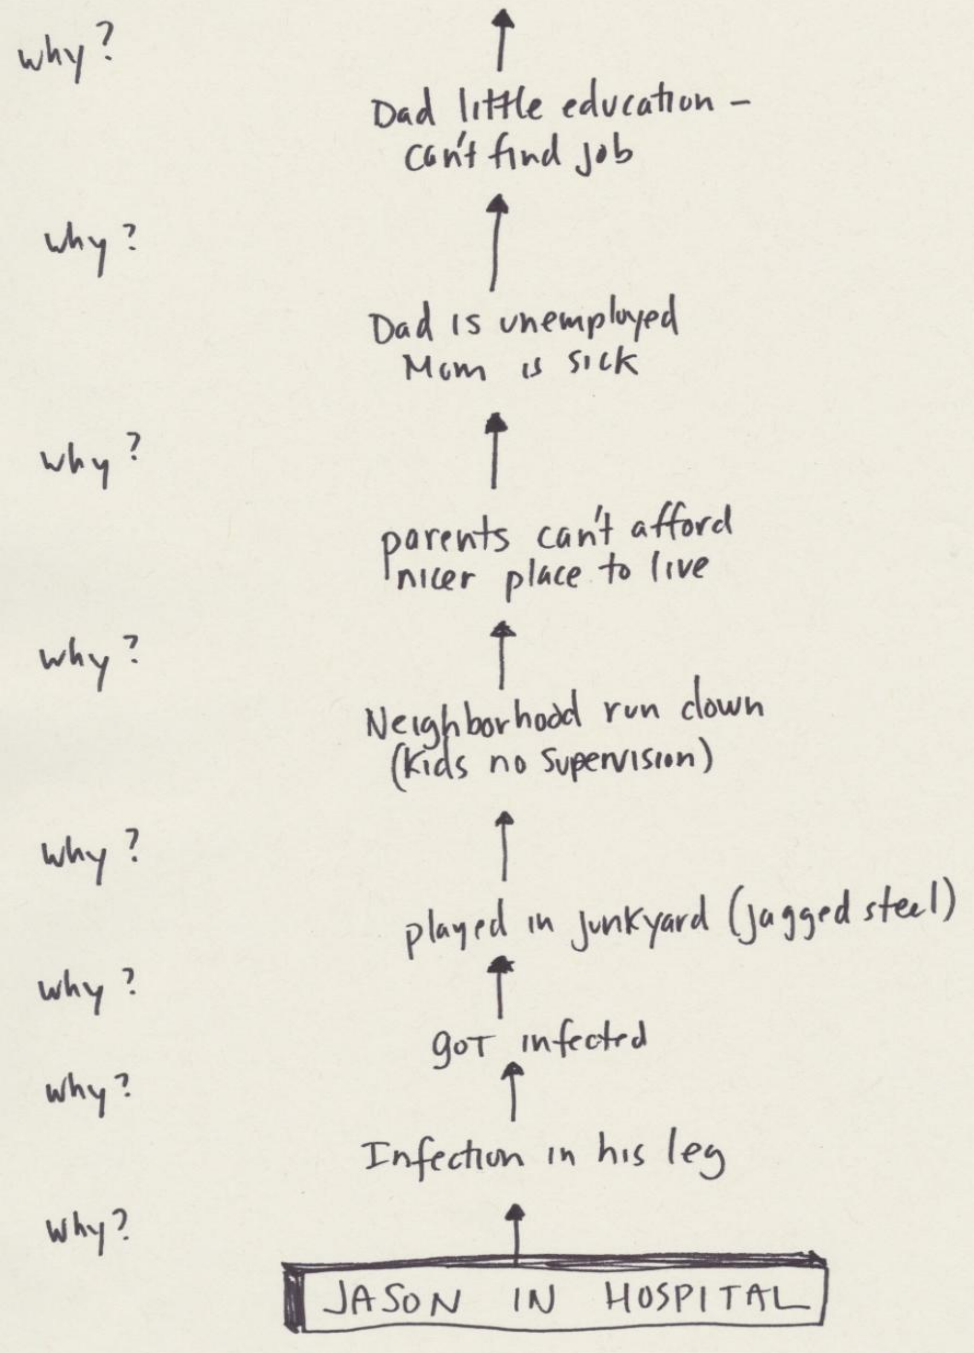 why?
Dad little education -
can't find job
why?
Dad is unemployed
Mom is sick
why?
parents can't afford
nicer place to live
why?
Neighborhood run down
(kids no supervision)
why?
played in junkyard (jagged steel)
why?
got infected
why?
Infection in his leg
why?
JASON IN HOSPITAL